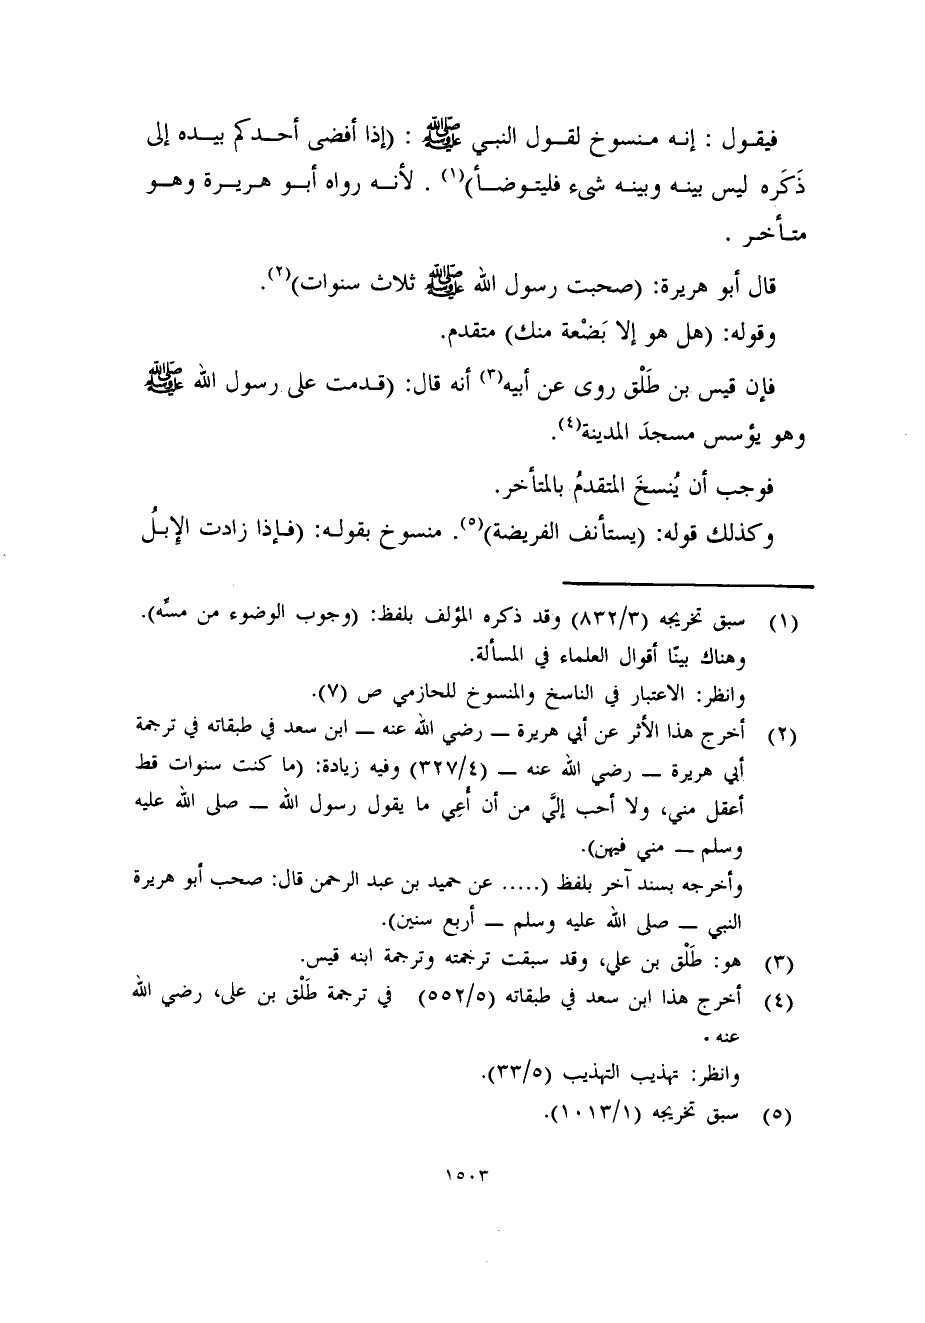 فيقول : إنه منسوخ لقول النبي ﷺ : (إذا أفضى أحدكم بيده إلى
ذَكَره ليس بينه وبينه شىء فليتوضأ)(١) . لأنه رواه أبو هريرة وهو
متأخر .
قال أبو هريرة: (صحبت رسول الله ﷺ ثلاث سنوات)(٢).
وقوله: (هل هو إلا بَضْعة منك) متقدم.
فإن قيس بن طَلْق روى عن أبيه(٣) أنه قال: (قدمت على رسول الله ﷺ
وهو يؤسس مسجدَ المدينة(٤).
فوجب أن يُنسخَ المتقدمُ بالمتأخر.
وكذلك قوله: (يستأنف الفريضة)(٥). منسوخ بقوله: (فإذا زادت الإِبلُ
(١) سبق تخريجه (٨٣٢/٣) وقد ذكره المؤلف بلفظ: (وجوب الوضوء من مسَّه).
وهناك بينّا أقوال العلماء في المسألة.
وانظر: الاعتبار في الناسخ والمنسوخ للحازمي ص (٧).
(٢) أخرج هذا الأثر عن أبي هريرة ــ رضي الله عنه ــ ابن سعد في طبقاته في ترجمة
أبي هريرة ــ رضي الله عنه ــ (٣٢٧/٤) وفيه زيادة: (ما كنت سنوات قط
أعقل مني، ولا أحب إليَّ من أن أُعِي ما يقول رسول الله ــ صلى الله عليه
وسلم ــ مني فيهن).
وأخرجه بسند آخر بلفظ (..... عن حميد بن عبد الرحمن قال: صحب أبو هريرة
النبي ــ صلى الله عليه وسلم ــ أربع سنين).
(٣) هو: طَلْق بن علي، وقد سبقت ترجمته وترجمة ابنه قيس.
(٤) أخرج هذا ابن سعد في طبقاته (٥٥٢/٥) في ترجمة طَلْق بن على، رضي الله
عنه .
وانظر: تهذيب التهذيب (٣٣/٥).
(٥) سبق تخريجه (١٠١٣/١).
١٥٠٣